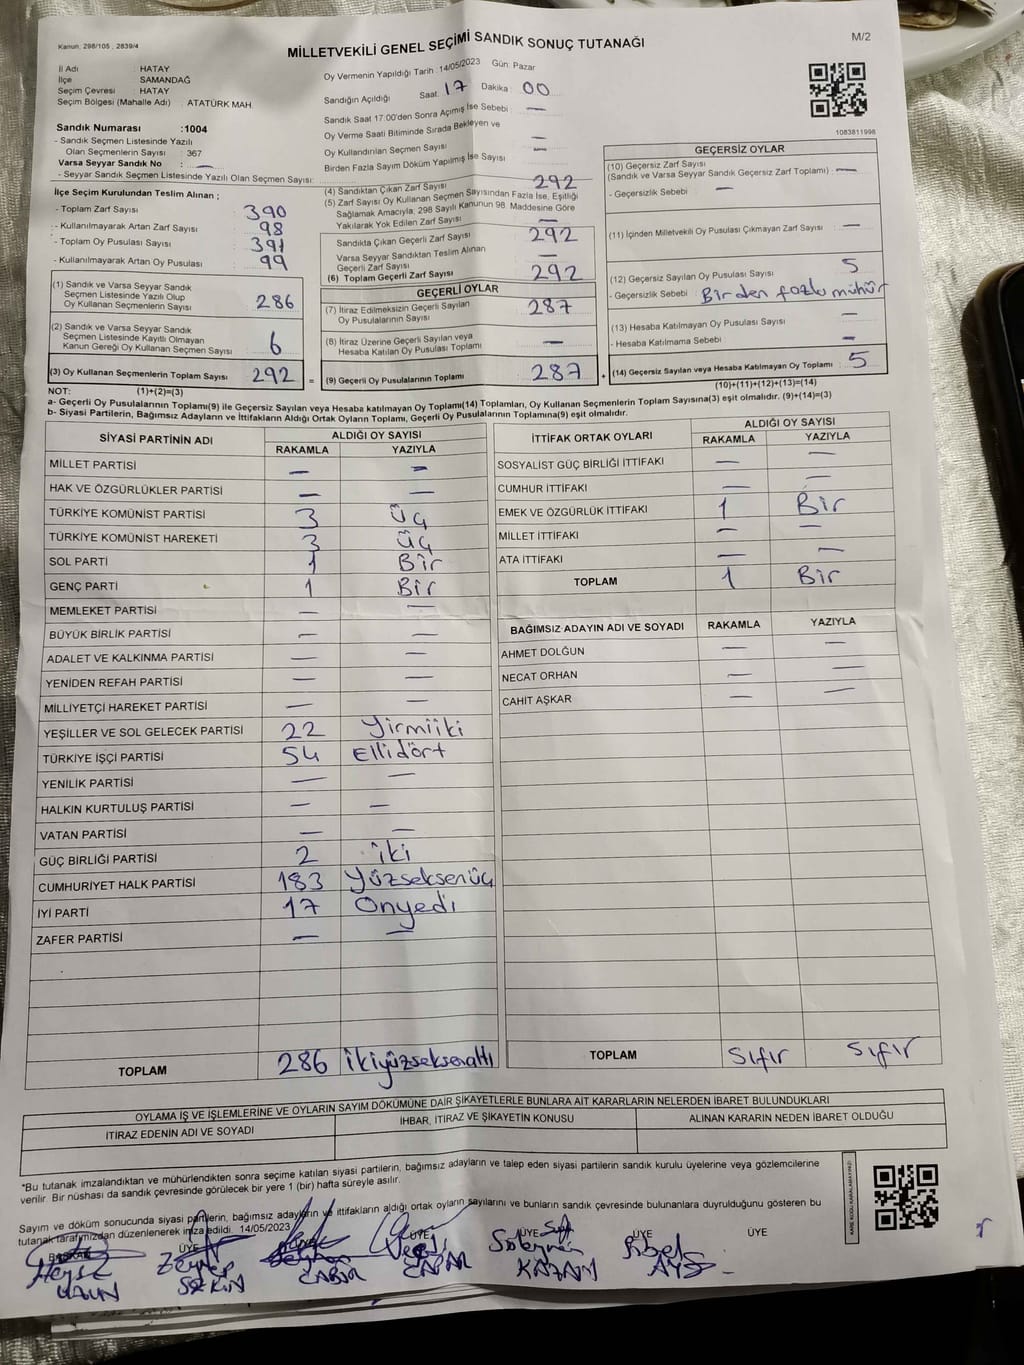 Kanun, 298/105 , 2839/4
MİLLETVEKİLİ GENEL SEÇİMİ SANDIK SONUÇ TUTANAĞI
M/2
İl Adı : HATAY
İlçe : SAMANDAĞ
Seçim Çevresi : HATAY
Seçim Bölgesi (Mahalle Adı) : ATATÜRK MAH.
Sandık Numarası :1004
- Sandık Seçmen Listesinde Yazılı
Olan Seçmenlerin Sayısı : 367
Varsa Seyyar Sandık No : —
- Seyyar Sandık Seçmen Listesinde Yazılı Olan Seçmen Sayısı:
Oy Vermenin Yapıldığı Tarih : 14/05/2023 Gün: Pazar
Sandığın Açıldığı Saat: 17 Dakika : 00
Sandık Saat 17:00'den Sonra Açımış İse Sebebi : —
Oy Verme Saati Bitiminde Sırada Bekleyen ve
Oy Kullandırılan Seçmen Sayısı : —
Birden Fazla Sayım Döküm Yapılmış İse Sayısı : —
1083811998
İlçe Seçim Kurulundan Teslim Alınan ;
- Toplam Zarf Sayısı : 390
- Kullanılmayarak Artan Zarf Sayısı : 98
- Toplam Oy Pusulası Sayısı : 391
- Kullanılmayarak Artan Oy Pusulası : 99
(1) Sandık ve Varsa Seyyar Sandık
Seçmen Listesinde Yazılı Olup
Oy Kullanan Seçmenlerin Sayısı : 286
(2) Sandık ve Varsa Seyyar Sandık
Seçmen Listesinde Kayıtlı Olmayan
Kanun Gereği Oy Kullanan Seçmen Sayısı : 6
(3) Oy Kullanan Seçmenlerin Toplam Sayısı : 292 =
(4) Sandıktan Çıkan Zarf Sayısı : 292
(5) Zarf Sayısı Oy Kullanan Seçmen Sayısından Fazla İse, Eşitliği
Sağlamak Amacıyla, 298 Sayılı Kanunun 98. Maddesine Göre
Yakılarak Yok Edilen Zarf Sayısı : —
Sandıkta Çıkan Geçerli Zarf Sayısı : 292
Varsa Seyyar Sandıktan Teslim Alınan
Geçerli Zarf Sayısı : —
(6) Toplam Geçerli Zarf Sayısı : 292
GEÇERLİ OYLAR
(7) İtiraz Edilmeksizin Geçerli Sayılan
Oy Pusulalarının Sayısı : 287
(8) İtiraz Üzerine Geçerli Sayılan veya
Hesaba Katılan Oy Pusulası Toplamı : —
(9) Geçerli Oy Pusulalarının Toplamı : 287 +
GEÇERSİZ OYLAR
(10) Geçersiz Zarf Sayısı
(Sandık ve Varsa Seyyar Sandık Geçersiz Zarf Toplamı) : —
- Geçersizlik Sebebi : —
(11) İçinden Milletvekili Oy Pusulası Çıkmayan Zarf Sayısı : —
(12) Geçersiz Sayılan Oy Pusulası Sayısı : 5
- Geçersizlik Sebebi : Birden fazla mühür
(13) Hesaba Katılmayan Oy Pusulası Sayısı : —
- Hesaba Katılmama Sebebi : —
(14) Geçersiz Sayılan veya Hesaba Katılmayan Oy Toplamı : 5
NOT: (1)+(2)=(3)
(10)+(11)+(12)+(13)=(14)
a- Geçerli Oy Pusulalarının Toplamı(9) ile Geçersiz Sayılan veya Hesaba katılmayan Oy Toplamı(14) Toplamları, Oy Kullanan Seçmenlerin Toplam Sayısına(3) eşit olmalıdır. (9)+(14)=(3)
b- Siyasi Partilerin, Bağımsız Adayların ve İttifakların Aldığı Ortak Oyların Toplamı, Geçerli Oy Pusulalarının Toplamına(9) eşit olmalıdır.
SİYASİ PARTİNİN ADI ALDIĞI OY SAYISI
RAKAMLA YAZIYLA
MİLLET PARTİSİ — —
HAK VE ÖZGÜRLÜKLER PARTİSİ — —
TÜRKİYE KOMÜNİST PARTİSİ 3 Üç
TÜRKİYE KOMÜNİST HAREKETİ 3 Üç
SOL PARTİ 1 Bir
GENÇ PARTİ 1 Bir
MEMLEKET PARTİSİ — —
BÜYÜK BİRLİK PARTİSİ — —
ADALET VE KALKINMA PARTİSİ — —
YENİDEN REFAH PARTİSİ — —
MİLLİYETÇİ HAREKET PARTİSİ — —
YEŞİLLER VE SOL GELECEK PARTİSİ 22 Yirmiiki
TÜRKİYE İŞÇİ PARTİSİ 54 Ellidört
YENİLİK PARTİSİ — —
HALKIN KURTULUŞ PARTİSİ — —
VATAN PARTİSİ — —
GÜÇ BİRLİĞİ PARTİSİ 2 iki
CUMHURİYET HALK PARTİSİ 183 Yüzseksenüç
İYİ PARTİ 17 Onyedi
ZAFER PARTİSİ — —
TOPLAM 286 ikiyüzseksenaltı
İTTİFAK ORTAK OYLARI ALDIĞI OY SAYISI
RAKAMLA YAZIYLA
SOSYALİST GÜÇ BİRLİĞİ İTTİFAKI — —
CUMHUR İTTİFAKI — —
EMEK VE ÖZGÜRLÜK İTTİFAKI 1 Bir
MİLLET İTTİFAKI — —
ATA İTTİFAKI — —
TOPLAM 1 Bir
BAĞIMSIZ ADAYIN ADI VE SOYADI RAKAMLA YAZIYLA
AHMET DOLĞUN — —
NECAT ORHAN — —
CAHİT AŞKAR — —
TOPLAM Sıfır Sıfır
OYLAMA İŞ VE İŞLEMLERİNE VE OYLARIN SAYIM DÖKÜMÜNE DAİR ŞİKAYETLERLE BUNLARA AİT KARARLARIN NELERDEN İBARET BULUNDUKLARI
İTİRAZ EDENİN ADI VE SOYADI İHBAR, İTİRAZ VE ŞİKAYETİN KONUSU ALINAN KARARIN NEDEN İBARET OLDUĞU
*Bu tutanak imzalandıktan ve mühürlendikten sonra seçime katılan siyasi partilerin, bağımsız adayların ve talep eden siyasi partilerin sandık kurulu üyelerine veya gözlemcilerine
verilir. Bir nüshası da sandık çevresinde görülecek bir yere 1 (bir) hafta süreyle asılır.
Sayım ve döküm sonucunda siyasi partilerin, bağımsız adayların ve ittifakların aldığı ortak oyların sayılarını ve bunların sandık çevresinde bulunanlara duyrulduğunu gösteren bu
tutanak tarafımızdan düzenlenerek imza edildi. 14/05/2023
BAŞKAN ÜYE ÜYE ÜYE ÜYE ÜYE ÜYE
Zeynep Süleyman Sibel